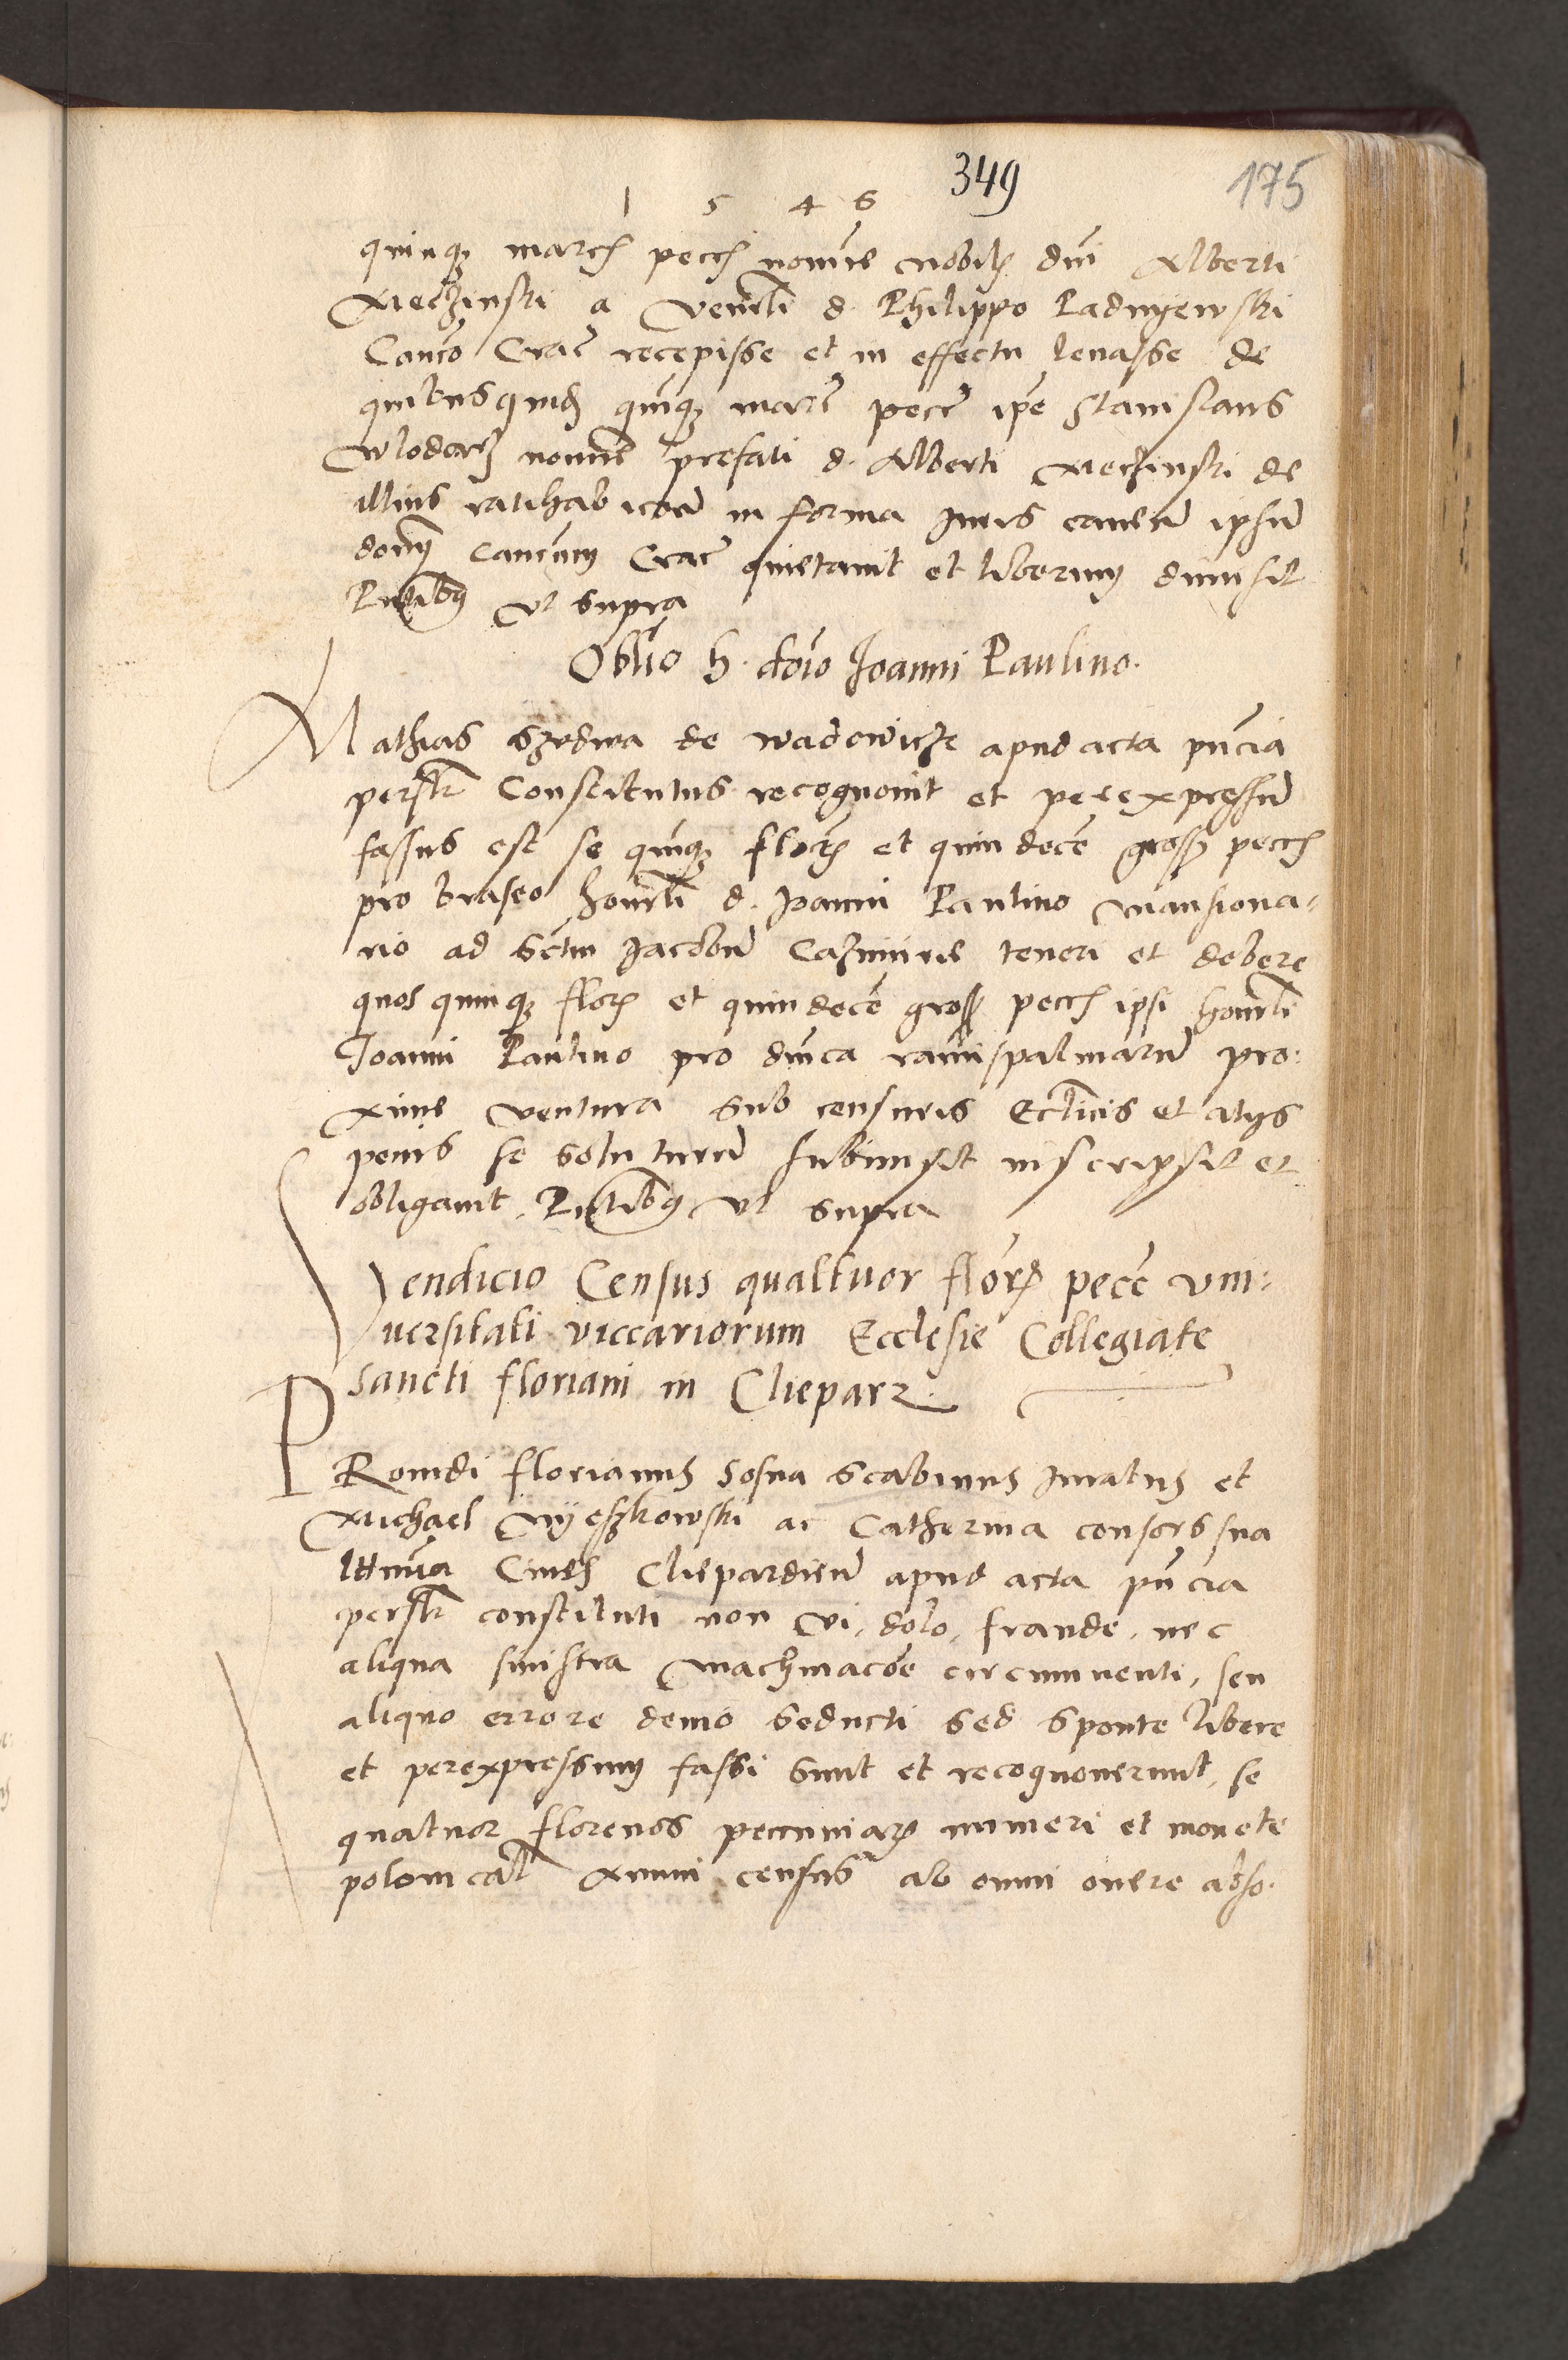 349
175
1 5 4 6
quinqȝ marcȝ pecȝ nomīe nobilȝ dni Alberti
Mecȝinski a Venerli d. Philippo Padnyewski
Canco Crac̄ recepisse et in effectu levasse de
quibusquidȝ quīqȝ marc̄ pecc̄ ipe Stanislaus
Wlodarȝ nomīe prefati d. Alberti Mecȝinski de
illius ratihabicōe in forma iuris caveñ ipsum
donȝ Cancūm Crac̄ quietavit et liberum dimisit
Pntibȝ Vt supra
Oblio h. doio Joanni Paulino.
Mathias de Wadowicȝe apud acta pn̄cia
persltr Constitutus recognovit et perexpressum
fassus est se quīqȝ florȝ et quindecē grossȝ pecȝ
pro braseo honorli d. Joanni Paulino mansiona-
rio ad Sctm Jacobū Caȝimirie teneri et debere
quos quinqȝ florȝ et quindecē grossȝ pecȝ ipsi honorli
Joanni Paulino pro dnica ramispalmarū pro:
xime ventura sub censuris Ecclicis et alijs
penis se soluturū submisit inscripsit et
obligavit. Pntibȝ Vt supra
Vendicio Census quattuor florȝ pecc̄ vni:
uersitati viccariorum Ecclesie Collegiate
sancti floriani in Cliepars.
PRovidi florianus Sosna Scabinus iuratus et
Michael ac Catherina consors sua
Cives Clieparđien̄ apud acta pn̄cia
persltr constituti non vi, dolo, fraude, nec
aliqua sinistra machinacōe circumventi, seu
aliquo errore devio seducti sed sponte libere
et perexpressum fassi sunt et recognoverunt, se
quatuor florenos pecuniarȝ numeri et monete
polonicał Annui census ab omni onere abso-